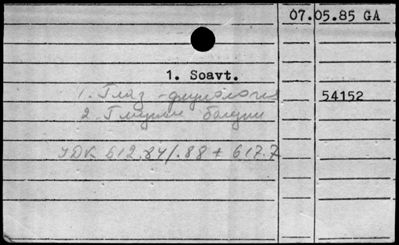 07.05.85 GA
1. Soavt.
1. Глаз - физиология 54152
2. Глазные болезни
УДК 612.84/.88 + 617.7